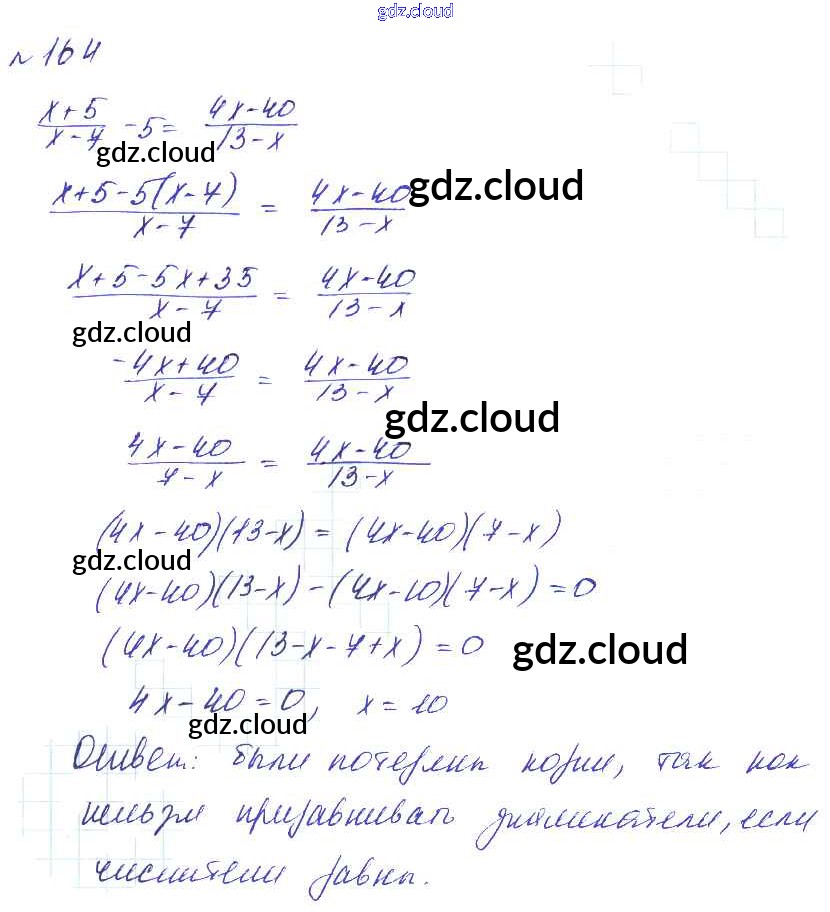 gdz.cloud
№164
x+5/x-7 -5= 4x-40/13-x
gdz.cloud
x+5-5(x-7)/x-7 = 4x-40/13-x
gdz.cloud
x+5-5x+35/x-7 = 4x-40/13-x
gdz.cloud
-4x+40/x-7 = 4x-40/13-x
gdz.cloud
4x-40/7-x = 4x-40/13-x
(4x-40)(13-x) = (4x-40)(7-x)
gdz.cloud
(4x-40)(13-x)-(4x-10)(7-x)=0
(4x-40)(13-x-7+x)=0
gdz.cloud
4x-40=0, x=10
gdz.cloud
Ответ: были потеряны корни, так как
нельзя приравнивать знаменатели, если
числители равны.